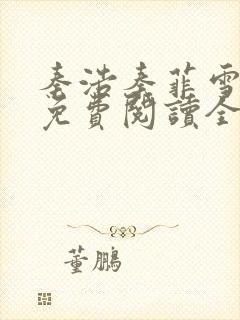 秦浩秦菲雪
免費閱讀全
董鵬